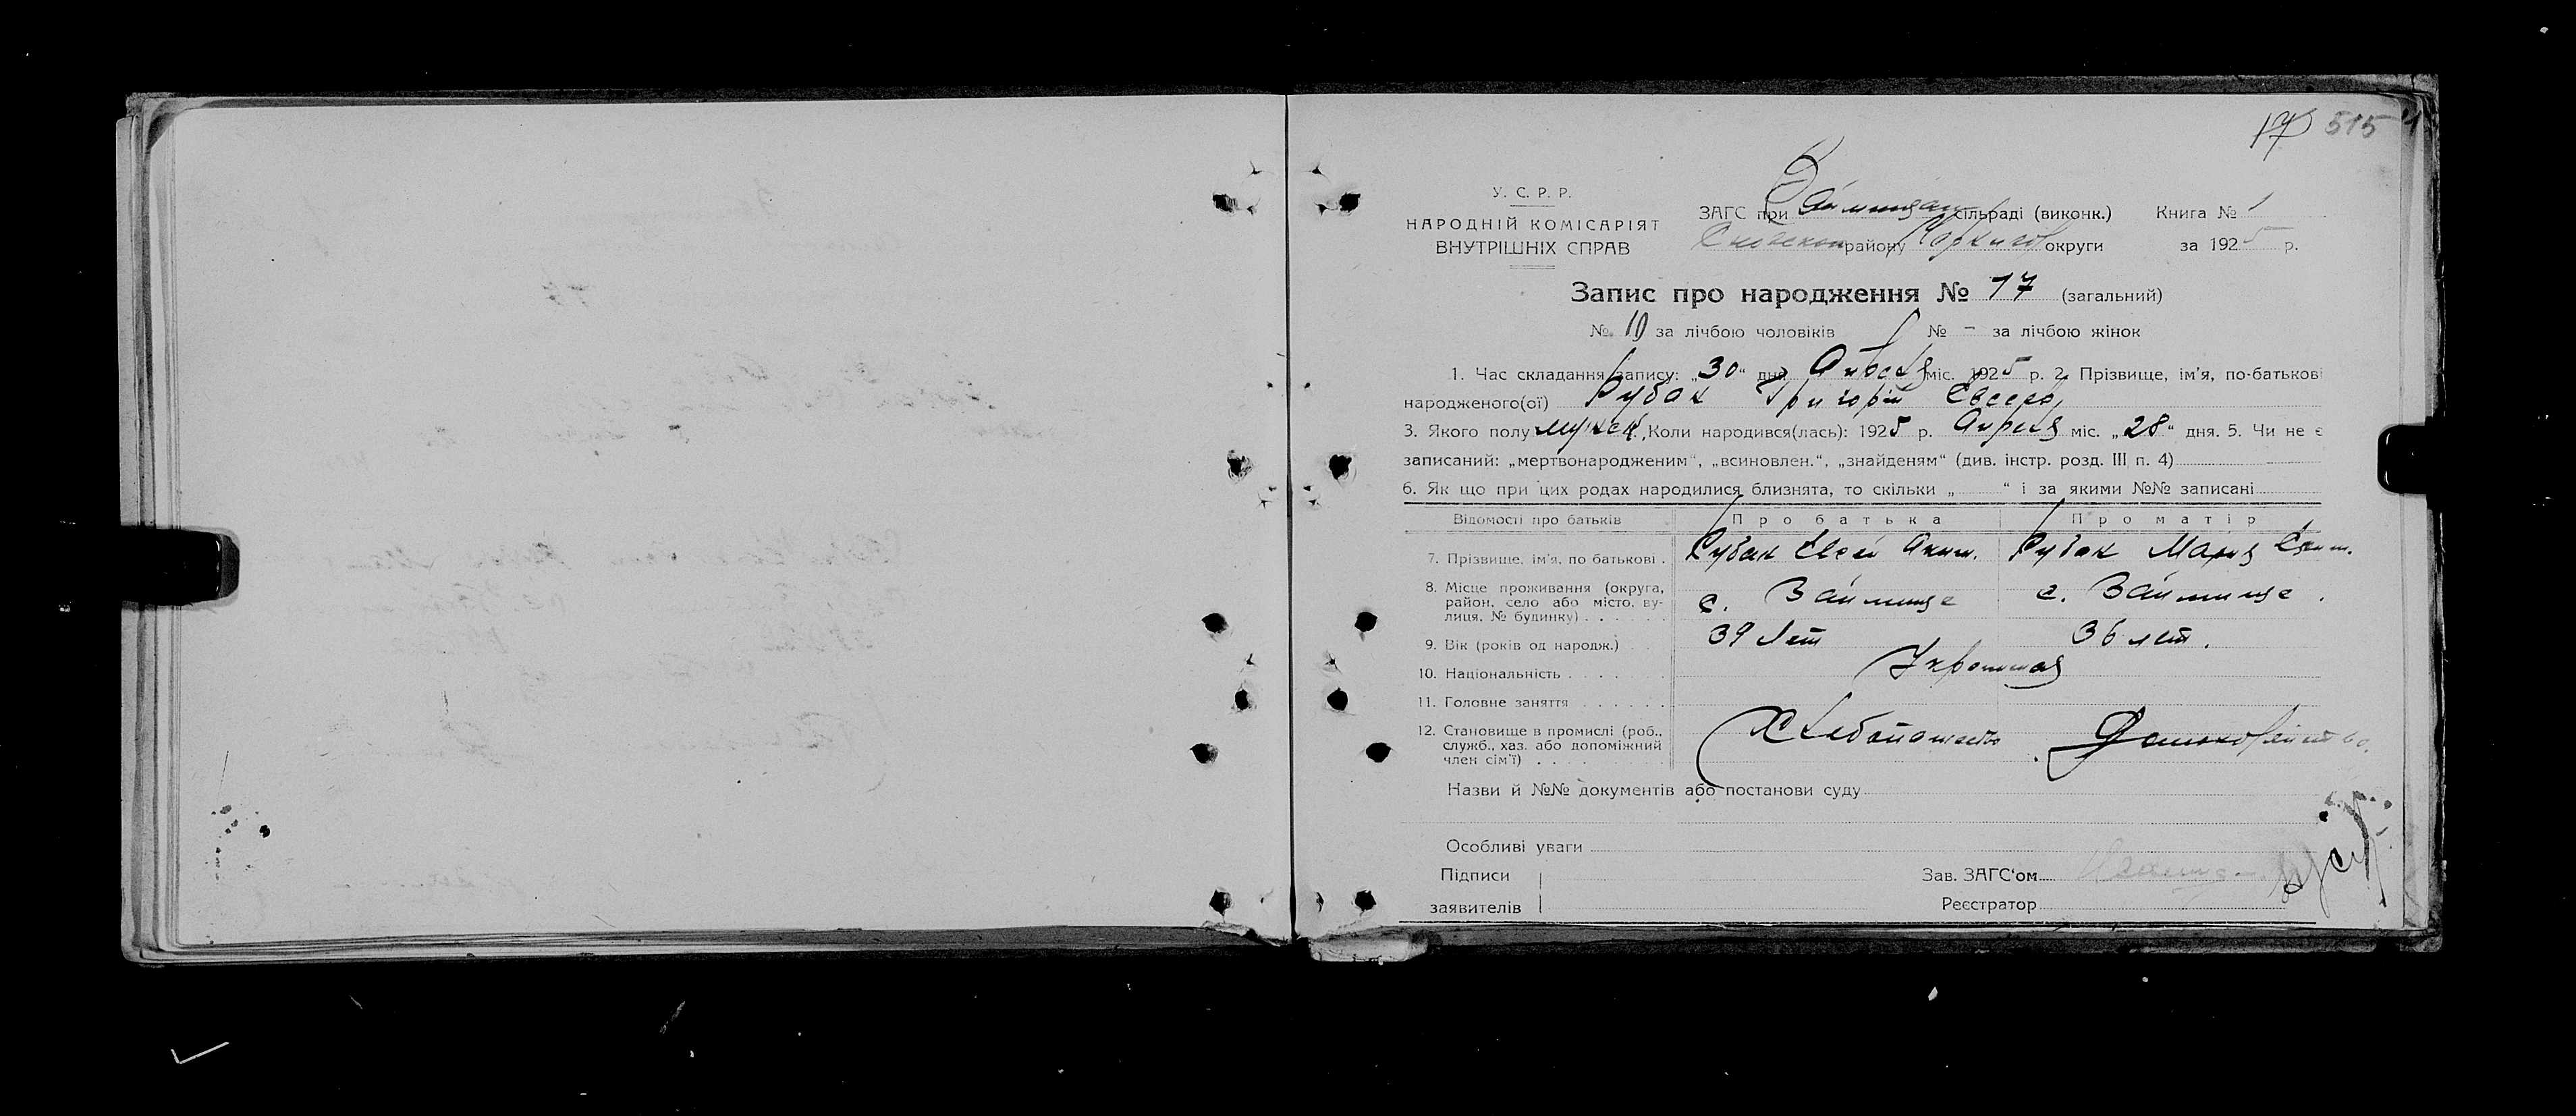 17 515
У. С. Р. Р.
НАРОДНІЙ КОМІСАРІЯТ
ВНУТРІШНІХ СПРАВ
ЗАГС при Займищан сільраді (виконк.) Книга № 1
Сновскои району округи за 1925 р.
Запис про народження № 17 (загальний)
№ 10 за лічбою чоловіків № - за лічбою жінок
1. Час складання запису: „30“ дня Апреля міс. 1925 р. 2. Прізвище, ім'я, по-батькові
народженого(ої) Рубак Григорій Євсеев,
3. Якого полу мужск, Коли народився(лась): 1925 р. Апреля міс. „28“ дня. 5. Чи не є
записаний: „мертвонародженим“, „всиновлен.“, „знайденям“ (див. інстр. розд. III п. 4)
6. Як що при цих родах народилися близнята, то скільки „ “ і за якими №№ записані
Відомості про батьків Про батька Про матір
7. Прізвище, ім'я, по батькові . Рубак Євсей Аким. Рубак Мария
8. Місце проживання (округа, район, село або місто, вулиця, № будинку) . . . . . . с. Займище с. Займище .
9. Вік (років од народж.) . . 39 лет 36 лет.
10. Національність . . . . . .
11. Головне заняття . . . . . .
12. Становище в промислі (роб., служб., хаз. або допоміжний член сім'ї) . . . . . . . . Хлебопашество Домохозяйство.
Назви й №№ документів або постанови суду
Особливі уваги
Підписи Зав. ЗАГС‘ом
заявителів Реєстратор